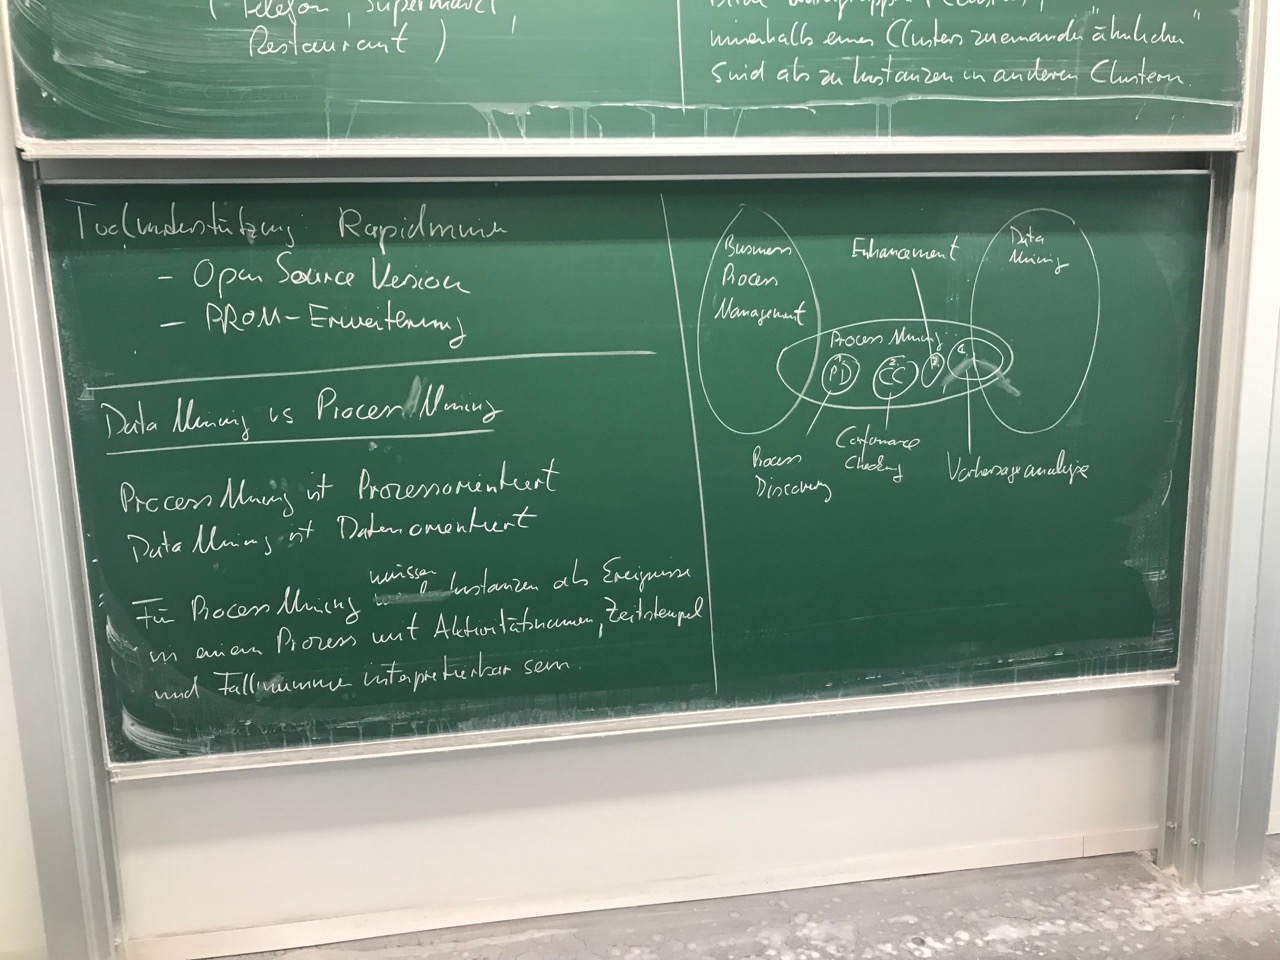 (Telefon, Supermarkt,
Restaurant)
innerhalb eines Clusters zueinander „ähnlicher"
sind als zu Instanzen in anderen Clustern.
Toolunterstützung: Rapidminer
- Open Source Version
- PROM-Erweiterung
Data Mining vs Process Mining
Process Mining ist Prozessorientiert
Data Mining ist Datenorientiert
Für Process Mining müssen Instanzen als Ereignisse
in einem Prozess mit Aktivitätsnamen, Zeitstempel
und Fallnummer interpretierbar sein.
Business
Process
Management
Enhancement
Data
Mining
Process Mining
1. PD
2. CC
3.
4.
Process
Discovery
Conformance
Checking
Vorhersageanalyse